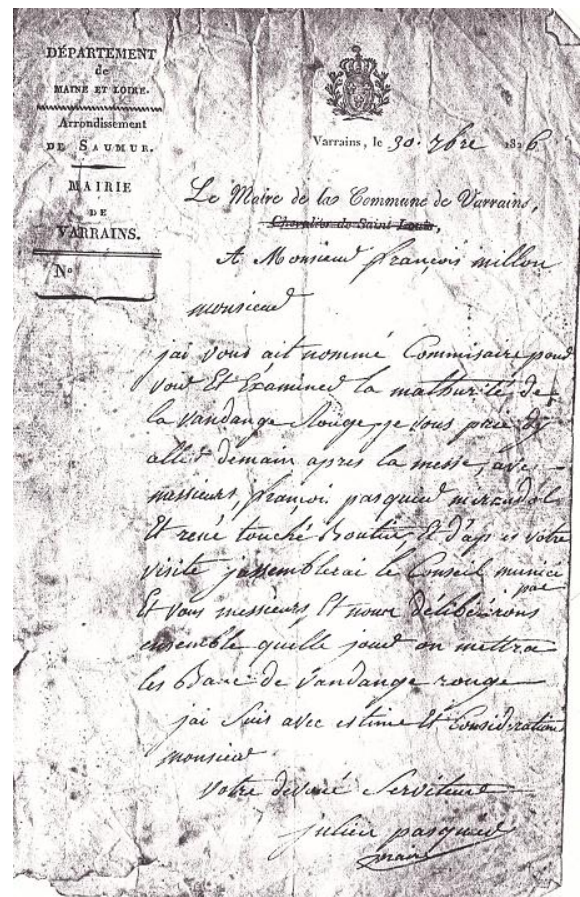 DÉPARTEMENT
de
MAINE ET LOIRE.
Arrondissement
DE SAUMUR.
MAIRIE
DE
VARRAINS.
N°
Varrains, le 30. 7bre 1826
Le Maire de las Commune de Varrains,
Chevalier de Saint Louis,
A Monsieur françois millon
monsieur
jai vous ait nommé Commisaire pour
voir Et Examiner la mathurité de
la vandange Rouge, je vous prie dy
aller demain apres la messe, avec
messieurs, françois pasquier mirandol
Et rené touché Boutier, Et d'ap es votre
visite jassemblerai le Conseil munici
pal
Et vous messieurs, Et nour délibérirons
ensemble quelle jour on mettra
les Banc de vandange rouge
jai Suis avec estime Et Considération
monsieur
votre devoué Serviteur
julien pasquier
maire